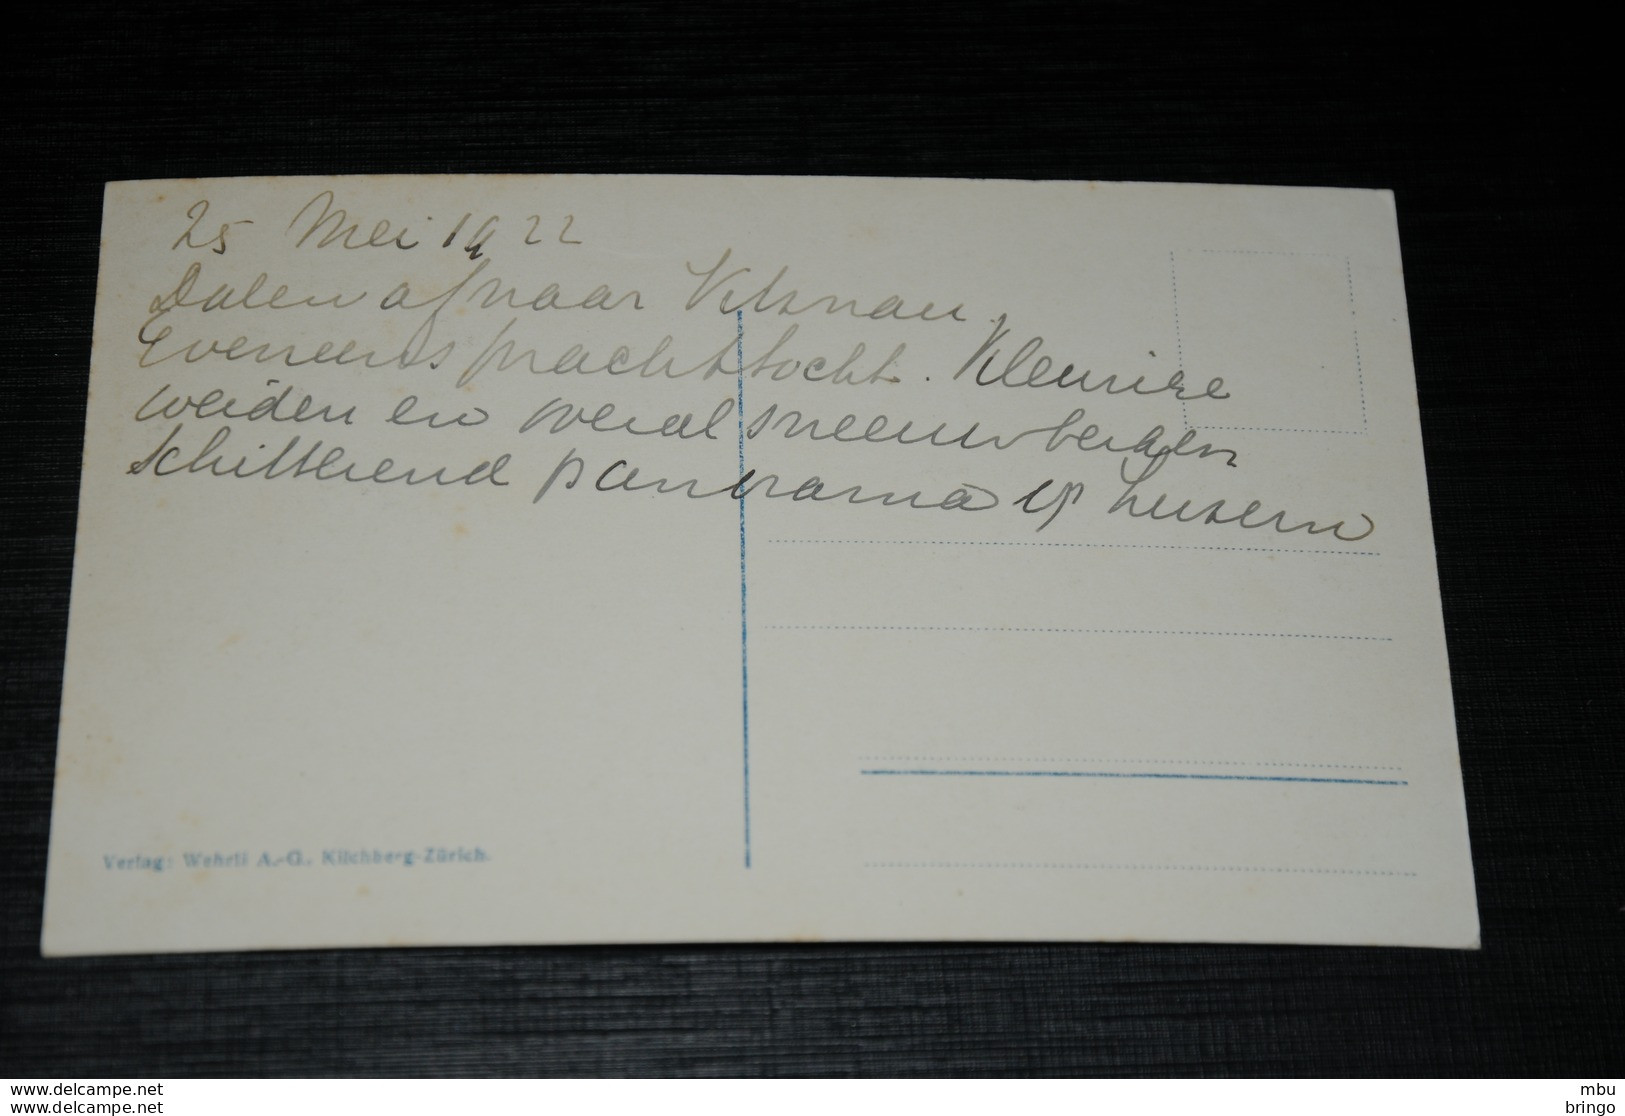 25 Mei 1922
Dalen af naar Vitznau.
Eveneens prachttocht. Kleurige
weiden en overal sneeuwbergen
schitterend panorama op Luzern
Verlag: Wehrli A.-G., Kilchberg-Zürich.
www.delcampe.net
www.delcampe.net
mbu
bringo